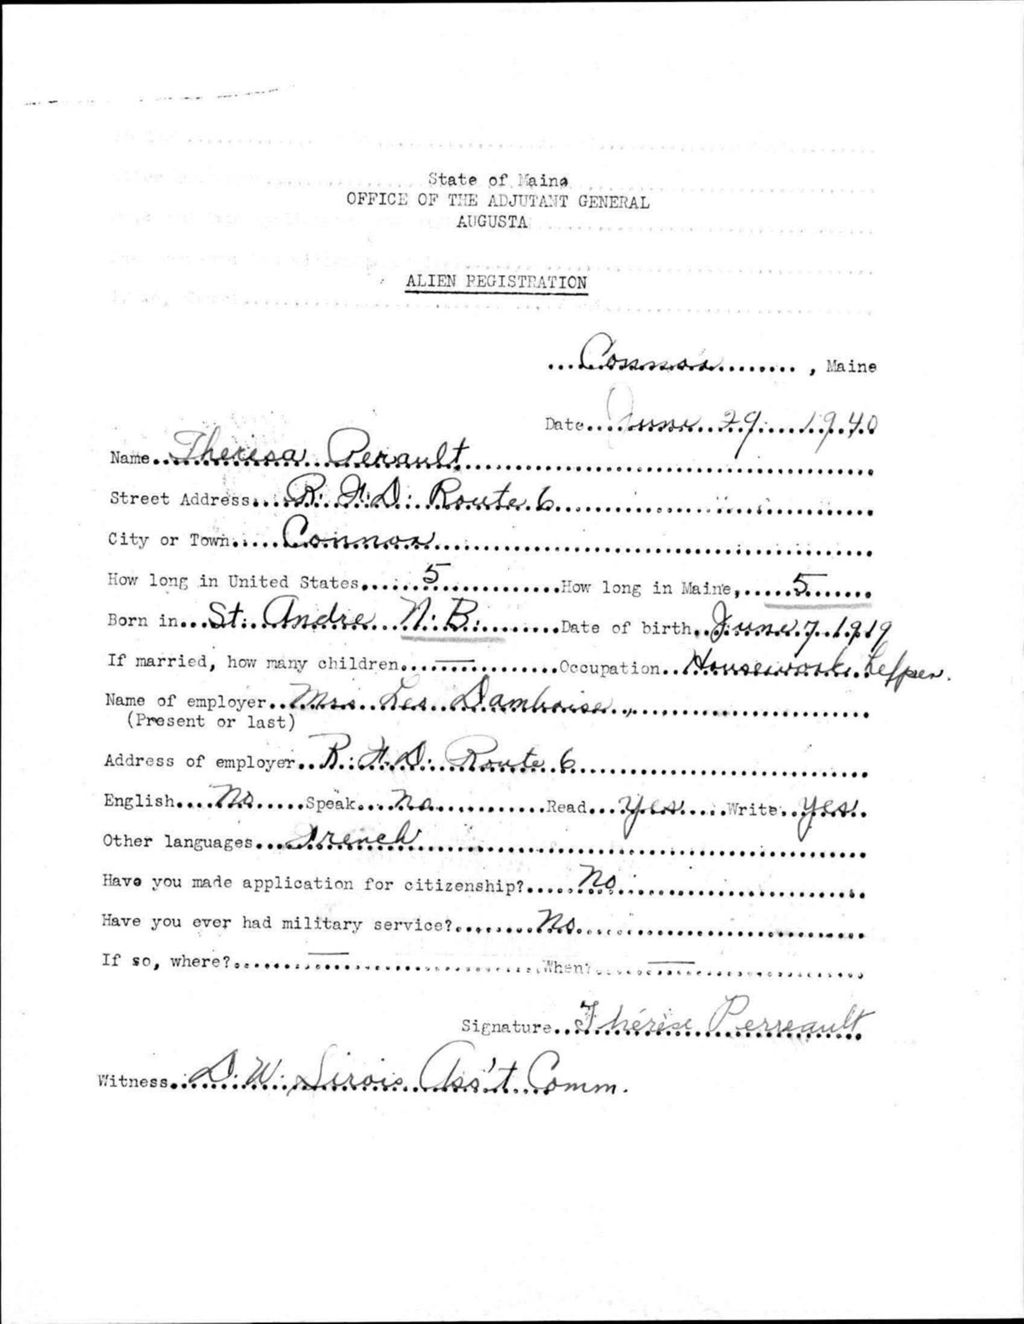 State of Maine
OFFICE OF THE ADJUTANT GENERAL
AUGUSTA
ALIEN REGISTRATION
Connor, Maine
Date June 29 1940
Name Theresa Perault
Street Address R. F. D. Route 6
City or Town Connor
How long in United States, 5 How long in Maine, 5
Born in St. Andre N. B. Date of birth June 7, 1919
If married, how many children — Occupation Housework helper.
Name of employer Mrs. Leo Damboise,
(Present or last)
Address of employer R. F. D. Route 6
English No Speak No Read Yes Write Yes
Other languages French
Have you made application for citizenship? No
Have you ever had military service? No
If so, where? — When? —
Signature Thérèse Perreault
Witness D. W. Sirois Ass't Comm.